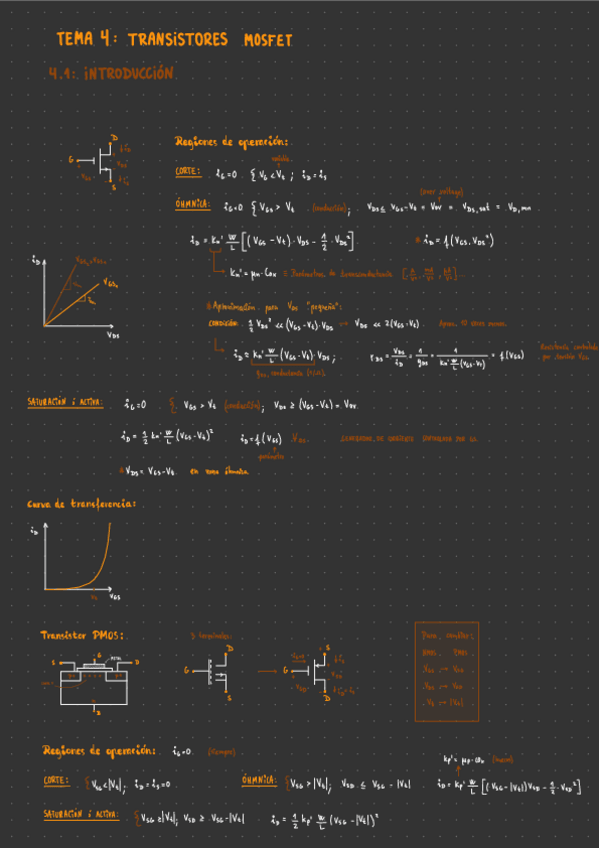 TEMA 4: TRANSISTORES MOSFET
4.1: INTRODUCCIÓN
Regiones de operación:
D
G
S
CORTE: iG=0 { VG < Vt ; iD=iS
ÓHMNICA: iG=0 { VGS > Vt (conducción); VDS ≤ VGS-Vt = VOV = VDS,sat = VD,min
iD = kn' W/L [(VGS - Vt)·VDS - 1/2·VDS²] * iD = f(VGS, VDS²)
kn' = μn·Cox ≡ Parámetro de transconductancia
iD
VGS
VDS
* Aproximación para VDS "pequeña":
CONDICIÓN: 1/2 VDS² << (VGS-Vt)·VDS → VDS << 2(VGS-Vt) Aprox. 10 veces menor.
iD ≈ kn' W/L (VGS-Vt)·VDS ; rDS = VDS/iD = 1/gDS = 1/(kn' W/L (VGS-Vt)) = f(VGS)
Resistencia controlada
por tensión VGS
gDS, conductancia
SATURACIÓN o ACTIVA: iG=0 { VGS > Vt (conducción); VDS ≥ (VGS-Vt) = VOV
iD = 1/2 kn' W/L (VGS-Vt)² iD = f(VGS)
* VDS = VGS-Vt en zona óhmnica
Curva de transferencia:
iD
VGS
Transistor PMOS: 3 terminales:
S G D
D
G
S
G
S
D
NMOS PMOS
VGS → VSG
VDS → VSD
Vt → |Vt|
Regiones de operación: iG=0 (siempre)
kp' = μp·COX
CORTE: { VSG < |Vt|; iD = iS = 0 ÓHMNICA: { VSG > |Vt|; VSD ≤ VSG - |Vt| iD = kp' W/L [(VSG - |Vt|)VSD - 1/2·VSD²]
SATURACIÓN o ACTIVA: { VSG ≥ |Vt|; VSD ≥ VSG - |Vt| iD = 1/2 kp' W/L (VSG - |Vt|)²